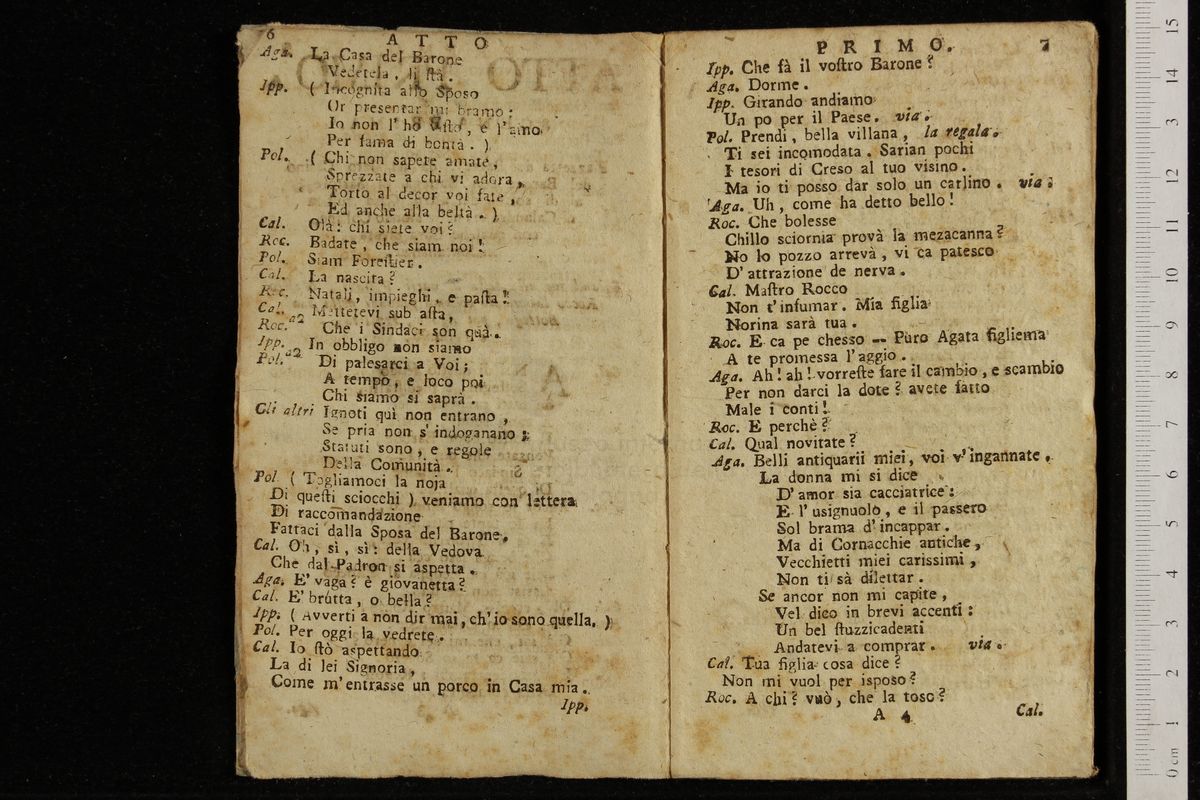 6
ATTO
Aga. La Casa del Barone
Vedetela, lì stà.
Ipp. ( Incognita allo Sposo
Or presentar mi bramo:
Io non l'ho visto, e l'amo
Per fama di bontà. )
Pol. ( Chi non sapete amate,
Sprezzate a chi vi adora,
Torto al decor voi fate,
Ed anche alla beltà. )
Cal. Olà: chi siete voi?
Roc. Badate, che siam noi!
Pol. Siam Forestier.
Cal. La nascita?
Roc. Natali, impieghi, e pasta!
Cal. a2 Mettetevi sub asta,
Roc. Che i Sindaci son quà.
Ipp. a2 In obbligo non siamo
Pol. Di palesarci a Voi;
A tempo, e loco poi
Chi siamo si saprà.
Gli altri Ignoti quì non entrano,
Se pria non s'indoganano;
Statuti sono, e regole
Della Comunità.
Pol. ( Togliamoci la noja
Di questi sciocchi ) veniamo con lettera
Di raccomandazione
Fattaci dalla Sposa del Barone.
Cal. Oh, sì, sì: della Vedova
Che dal Padron si aspetta.
Aga. E' vaga? è giovanetta?
Cal. E' brutta, o bella?
Ipp. ( Avverti a non dir mai, ch'io sono quella. )
Pol. Per oggi la vedrete.
Cal. Io stò aspettando
La di lei Signoria,
Come m'entrasse un porco in Casa mia.
Ipp.
PRIMO. 7
Ipp. Che fà il vostro Barone?
Aga. Dorme.
Ipp. Girando andiamo
Un po per il Paese. via.
Pol. Prendi, bella villana, la regala.
Ti sei incomodata. Sarian pochi
I tesori di Creso al tuo visino.
Ma io ti posso dar solo un carlino. via.
Aga. Uh, come ha detto bello!
Roc. Che bolesse
Chillo sciornia provà la mezacanna?
No lo pozzo arrevà, vi ca patesco
D'attrazione de nerva.
Cal. Mastro Rocco
Non t'infumar. Mia figlia
Norina sarà tua.
Roc. E ca pe chesso -- Puro Agata figliema
A te promessa l'aggio.
Aga. Ah! ah! vorreste fare il cambio, e scambio
Per non darci la dote? avete fatto
Male i conti!
Roc. E perchè?
Cal. Qual novitate?
Aga. Belli antiquarii miei, voi v'ingannate.
La donna mi si dice
D'amor sia cacciatrice:
E l'usignuolo, e il passero
Sol brama d'incappar.
Ma di Cornacchie antiche,
Vecchietti miei carissimi,
Non ti sà dilettar.
Se ancor non mi capite,
Vel dico in brevi accenti:
Un bel stuzzicadenti
Andatevi a comprar. via.
Cal. Tua figlia cosa dice?
Non mi vuol per isposo?
Roc. A chi? vuò, che la toso?
A 4 Cal.